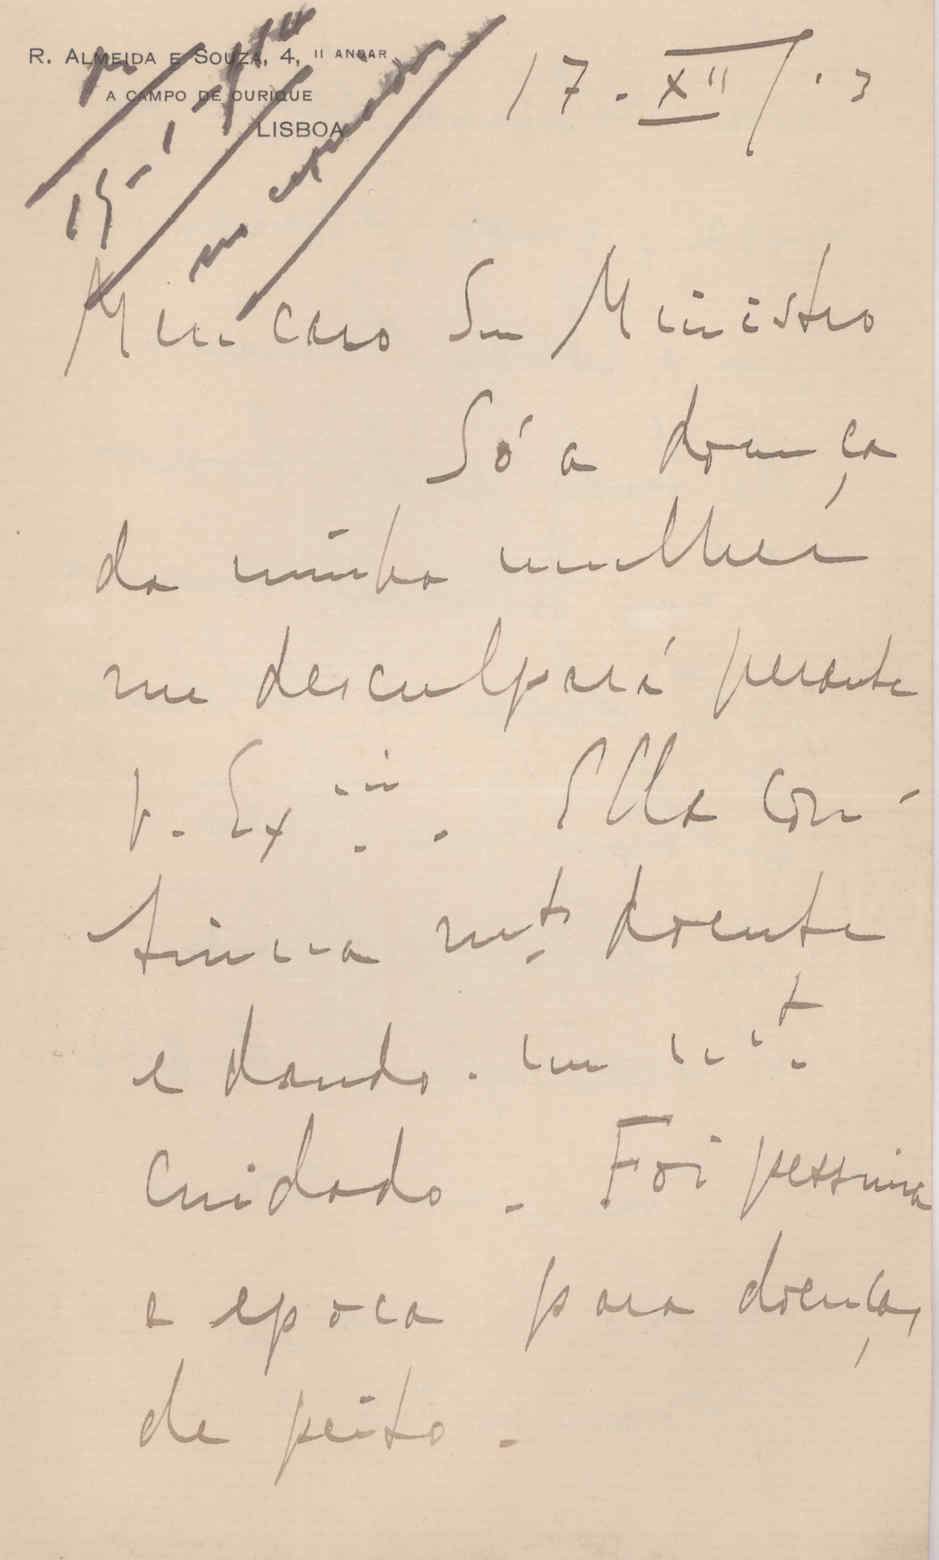 R. ALMEIDA E SOUZA, 4, II ANDAR
A CAMPO DE OURIQUE
LISBOA
17 - XII / 13
15-1-
Meu caro Snr Ministro
Só a doença
da minha mulher
me desculpará perante
V. Exª. Ella con-
tinua mtº doente
e dando-me mtº
cuidado. Foi pessima
a epoca para doenças
de peito.